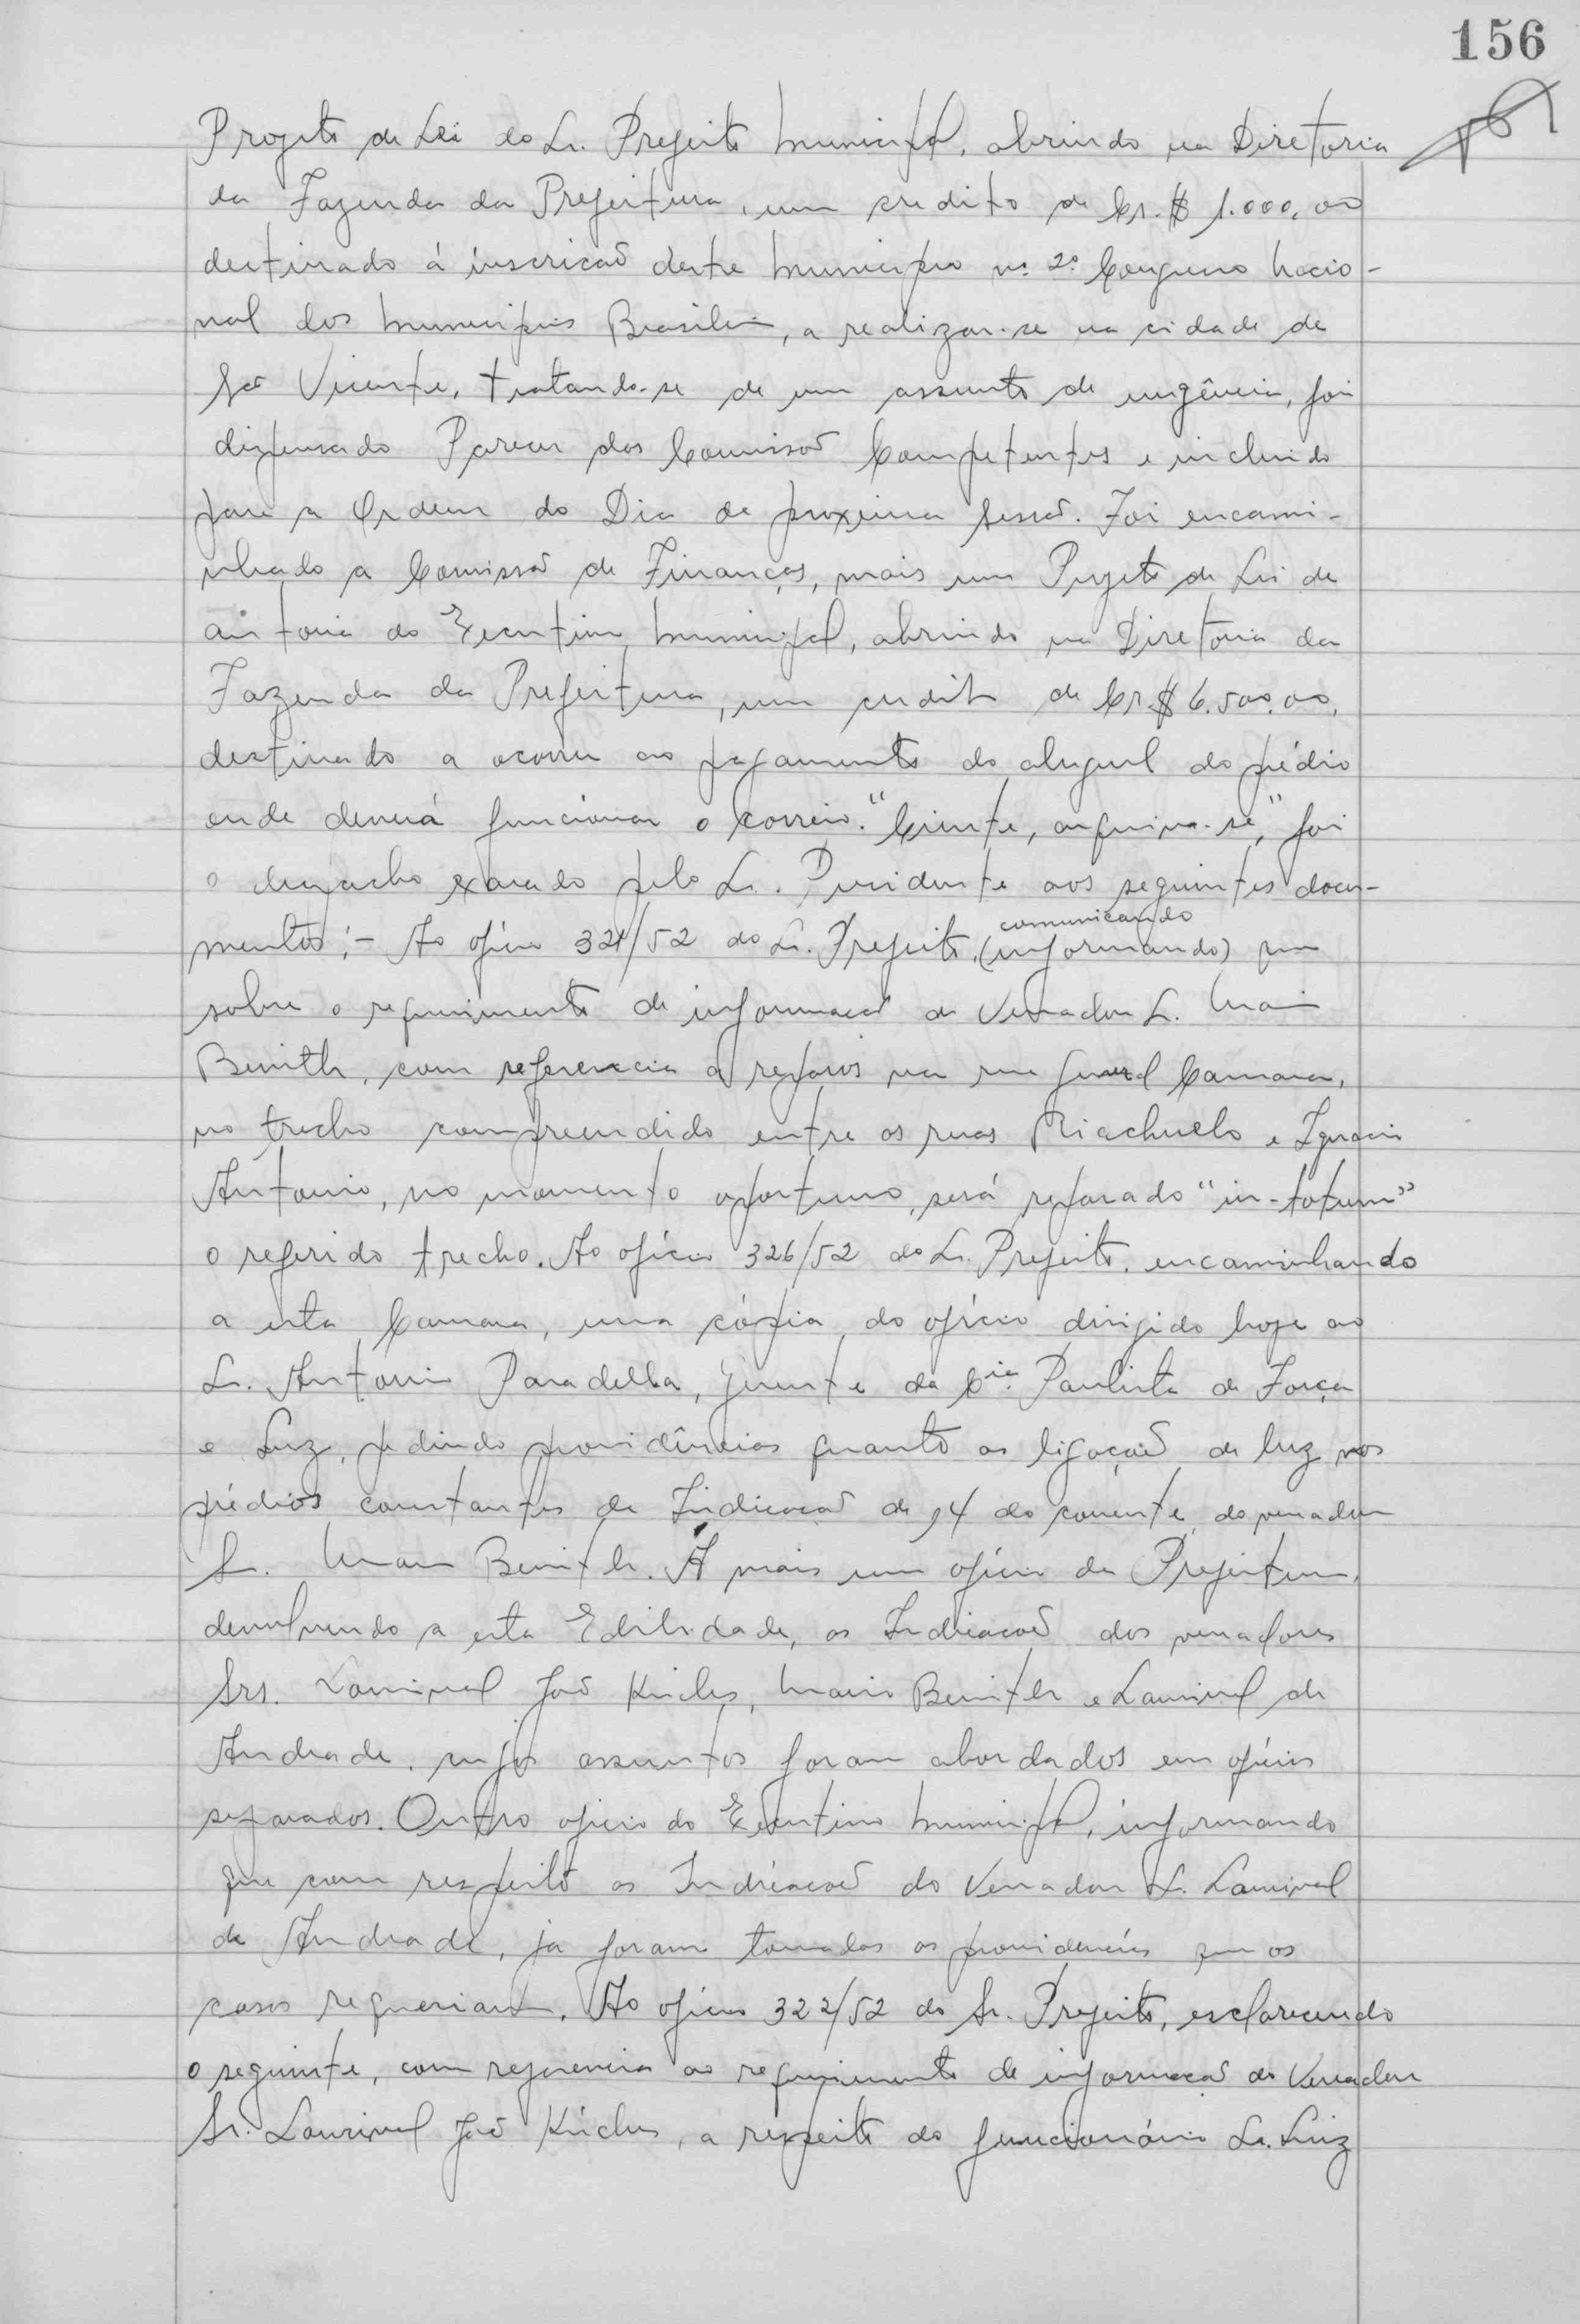 156
Projeto de Lei do Sr. Prefeito Municipal, abrindo na Diretoria
da Fazenda da Prefeitura, um credito de Cr.$ 1.000,00
destinado á inscricão deste Municipio no 2º Congresso Nacio-
nal dos Municipios Brasileiros, a realizar-se na cidade de
São Vicente, tratando-se de um assunto de urgência, foi
dispensado Parecer das Comissões Competentes e incluido
para a Ordem do Dia da proxima sessão. Foi encami-
nhado a Comissão de Finanças, mais um Projeto de Lei de
autoria do Executivo Municipal, abrindo na Diretoria da
Fazenda da Prefeitura, um credito de Cr$ 6.500,00,
destinado a ocorrer ao pagamento do aluguel do prédio
onde deverá funcionar o Correio. "Ciente, arquive-se", foi
o despacho exarado pelo Sr. Presidente aos seguintes docu-
mentos:- Ao oficio 321/52 do Sr. Prefeito, (informando) comunicando que
sobre o requerimento de informação do Vereador Sr. Mario
Beni, com referencia a reparos na rua General Camara,
no trecho compreendido entre as ruas Riachuelo e Ignacio
Antonio, no momento oportuno, será reparado "in-totum"
o referido trecho. Ao oficio 326/52 do Sr. Prefeito, encaminhando
a esta Camara, uma cópia do oficio dirigido hoje ao
Sr. Antonio Paradella, gerente da Cia. Paulista de Força
e Luz, pedindo providências quanto as ligações de luz nos
prédios constantes da Indicação de 14 do corrente, do vereador
Sr. Mario . A mais um oficio da Prefeitura,
devolvendo a esta Edilidade, as Indicacões dos vereadores
Srs. Lourival João , Mario e Lourival de
Andrade, cujos assuntos foram abordados em oficios
separados. Outro oficio do Executivo Municipal, informando
que com respeito as Indicacões do Vereador Sr. Lourival
de Andrade, ja foram tomadas as providencias que os
casos requeriam. Ao oficio 322/52 do Sr. Prefeito, esclarecendo
o seguinte, com referencia ao requerimento de informacão do Vereador
Sr. Lourival João , a respeito do funcionário Sr. Luiz